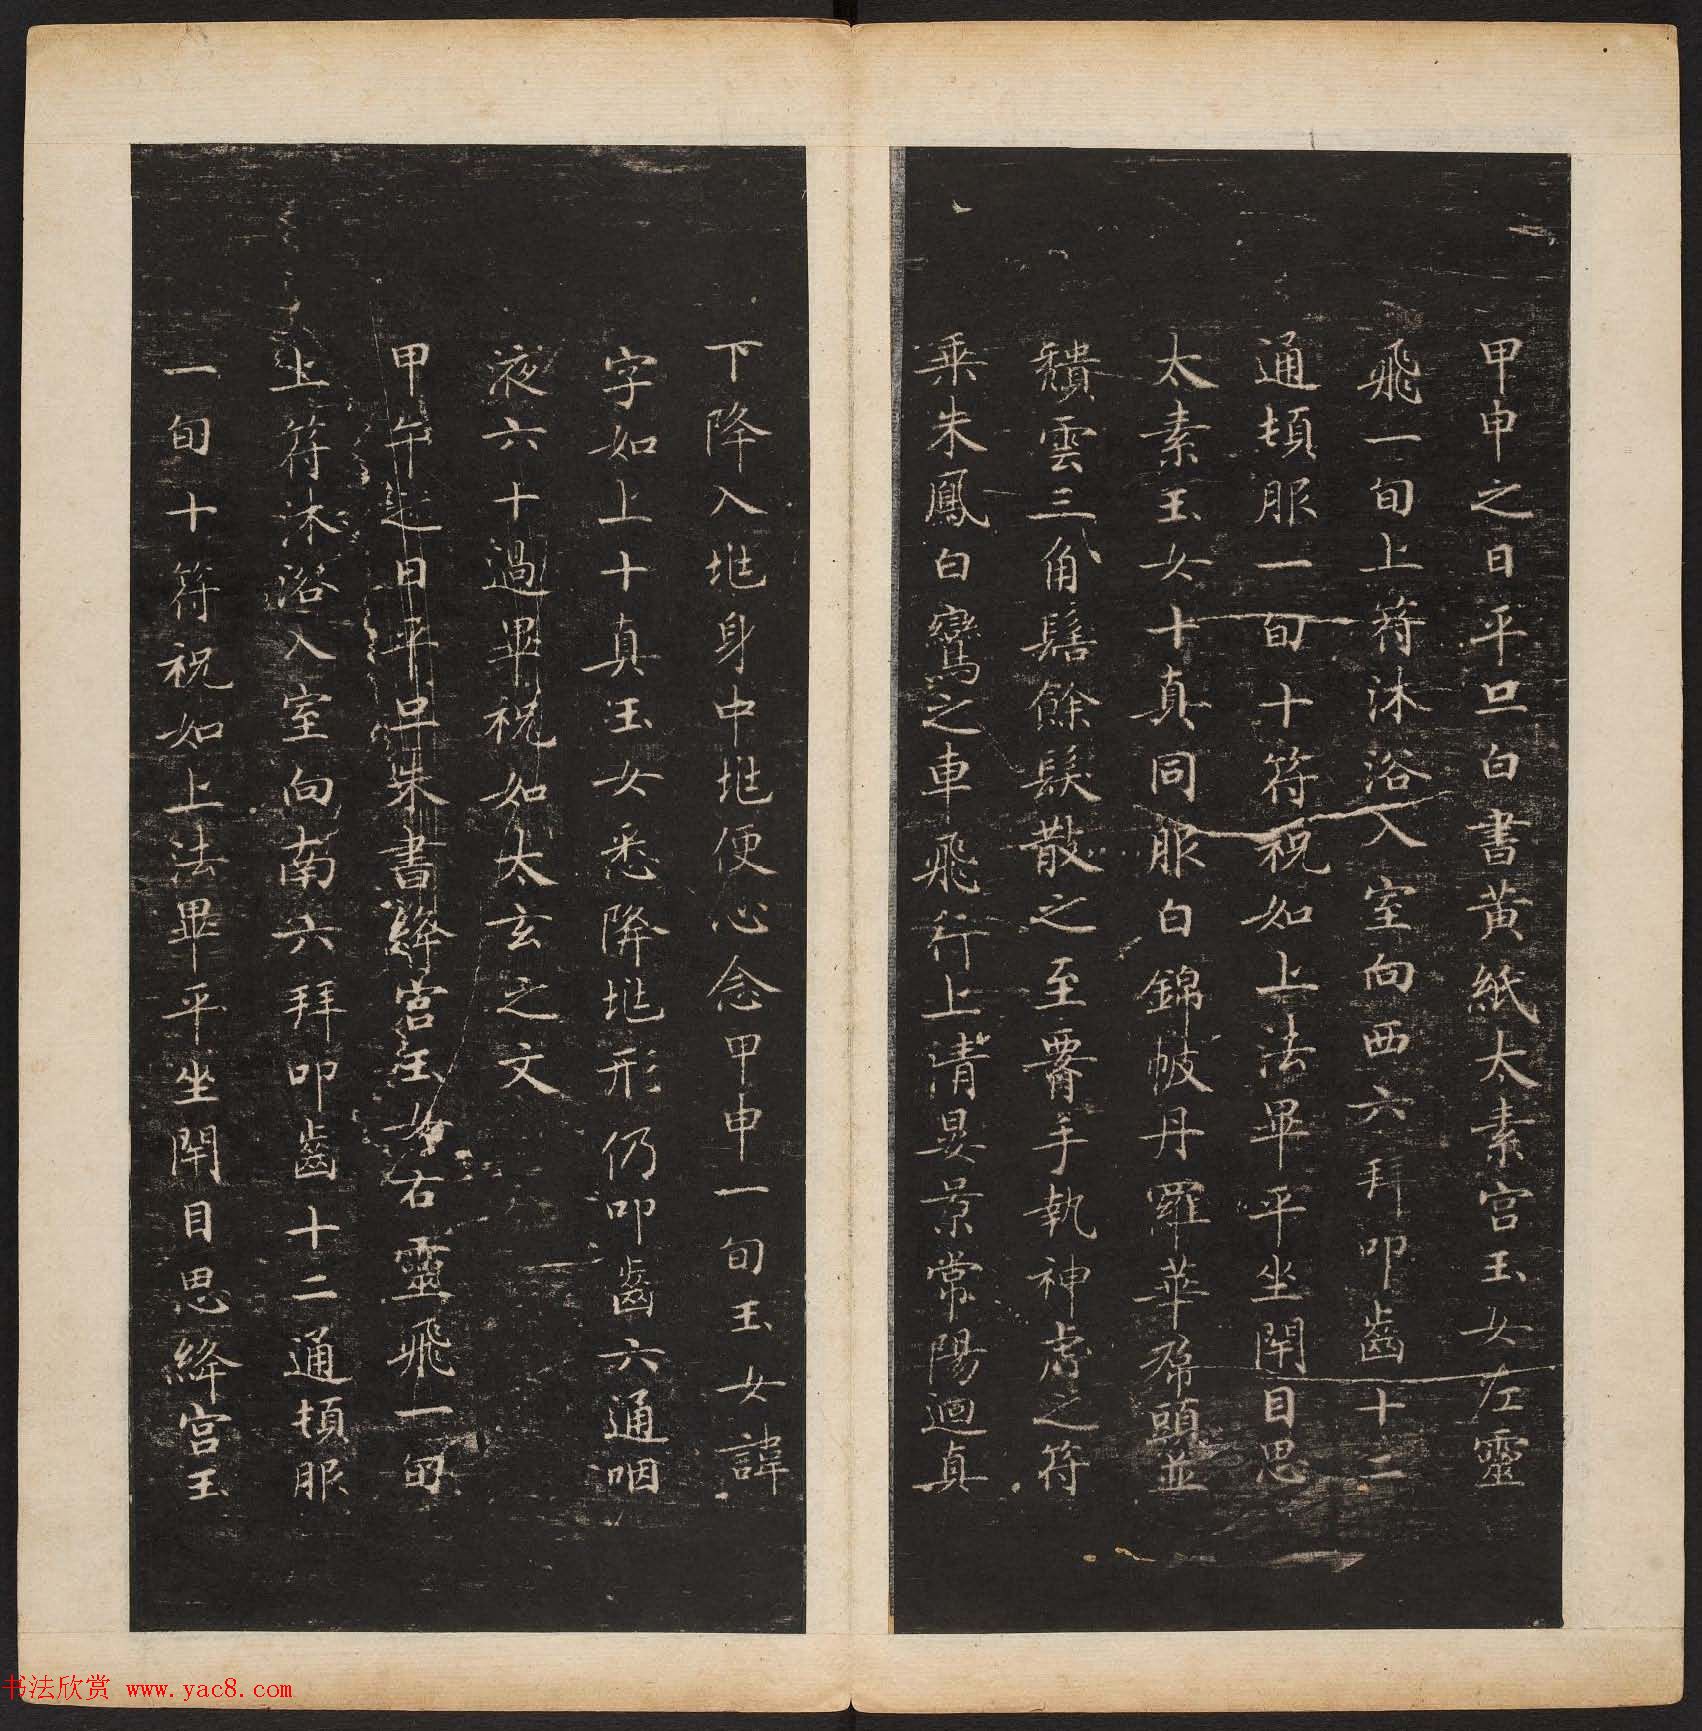 甲申之日平旦白書黃紙太素宮玉女左靈
飛一旬上符沐浴入室向西六拜叩齒十二
通頓服一旬十符祝如上法畢平坐閉目思
太素玉女十真同服白錦帔丹羅華帬頭並
頹雲三角髻餘髮散之至䙅手執神虎之符
乘朱鳳白鸞之車飛行上清晏景常陽迴真
下降入𡉏身中𡉏便心念甲申一旬玉女諱
字如上十真玉女悉降𡉏形仍叩齒六通咽
液六十過畢祝如太玄之文
甲午之日平旦朱書絳宮玉女右靈飛一旬
上符沐浴入室向南六拜叩齒十二通頓服
一旬十符祝如上法畢平坐閉目思絳宮玉
书法欣赏 www.yac8.com